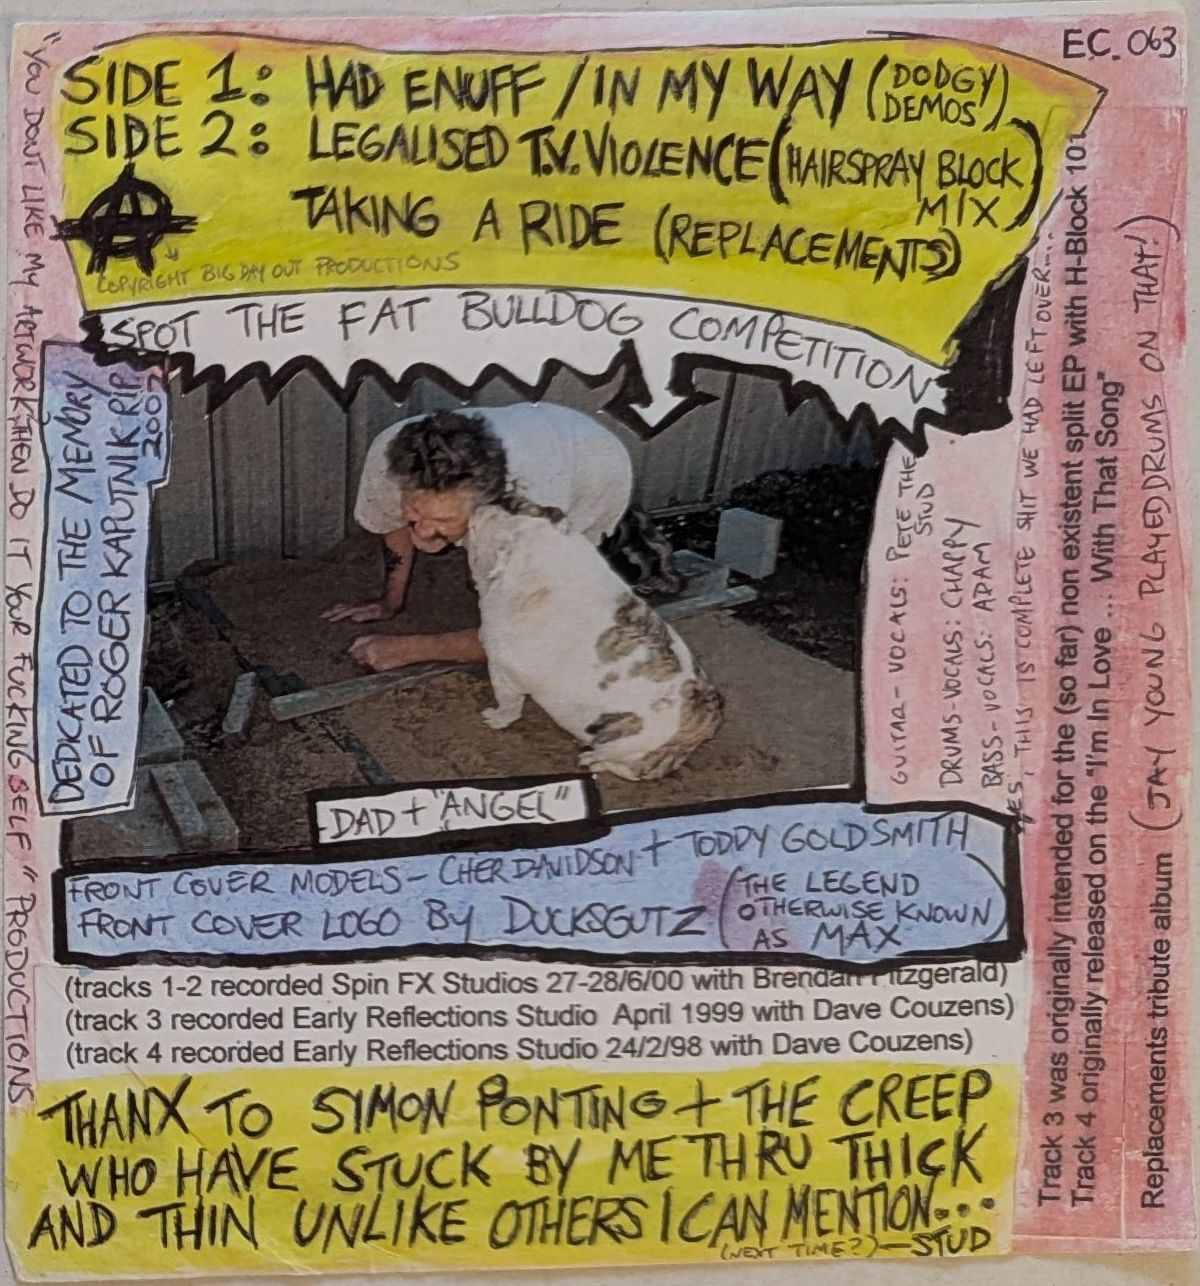 E.C. 063
SIDE 1: HAD ENUFF / IN MY WAY (DODGY DEMOS)
SIDE 2: LEGALISED T.V. VIOLENCE (HAIRSPRAY BLOCK MIX)
TAKING A RIDE (REPLACEMENTS)
COPYRIGHT BIG DAY OUT PRODUCTIONS
SPOT THE FAT BULLDOG COMPETITION
"YOU DON'T LIKE MY ARTWORK, THEN DO IT YOUR FUCKING SELF" PRODUCTIONS
DEDICATED TO THE MEMORY
OF ROGER KAPUTNIK RIP
2002
GUITAR-VOCALS: PETE THE STUD
DRUMS-VOCALS: CHAPPY
BASS-VOCALS: ADAM
YES, THIS IS COMPLETE SHIT WE HAD LEFT OVER....
Track 3 was originally intended for the (so far) non existent split EP with H-Block 101
Track 4 originally released on the "I'm In Love ... With That Song"
Replacements tribute album (JAY YOUNG PLAYED DRUMS ON THAT!)
DAD + "ANGEL"
FRONT COVER MODELS - CHER DAVIDSON + TODDY GOLDSMITH
FRONT COVER LOGO BY DUCKSGUTZ (THE LEGEND
OTHERWISE KNOWN
AS MAX)
(tracks 1-2 recorded Spin FX Studios 27-28/6/00 with Brendan Fitzgerald)
(track 3 recorded Early Reflections Studio April 1999 with Dave Couzens)
(track 4 recorded Early Reflections Studio 24/2/98 with Dave Couzens)
THANX TO SIMON PONTING + THE CREEP
WHO HAVE STUCK BY ME THRU THICK
AND THIN UNLIKE OTHERS I CAN MENTION...
(NEXT TIME?) - STUD